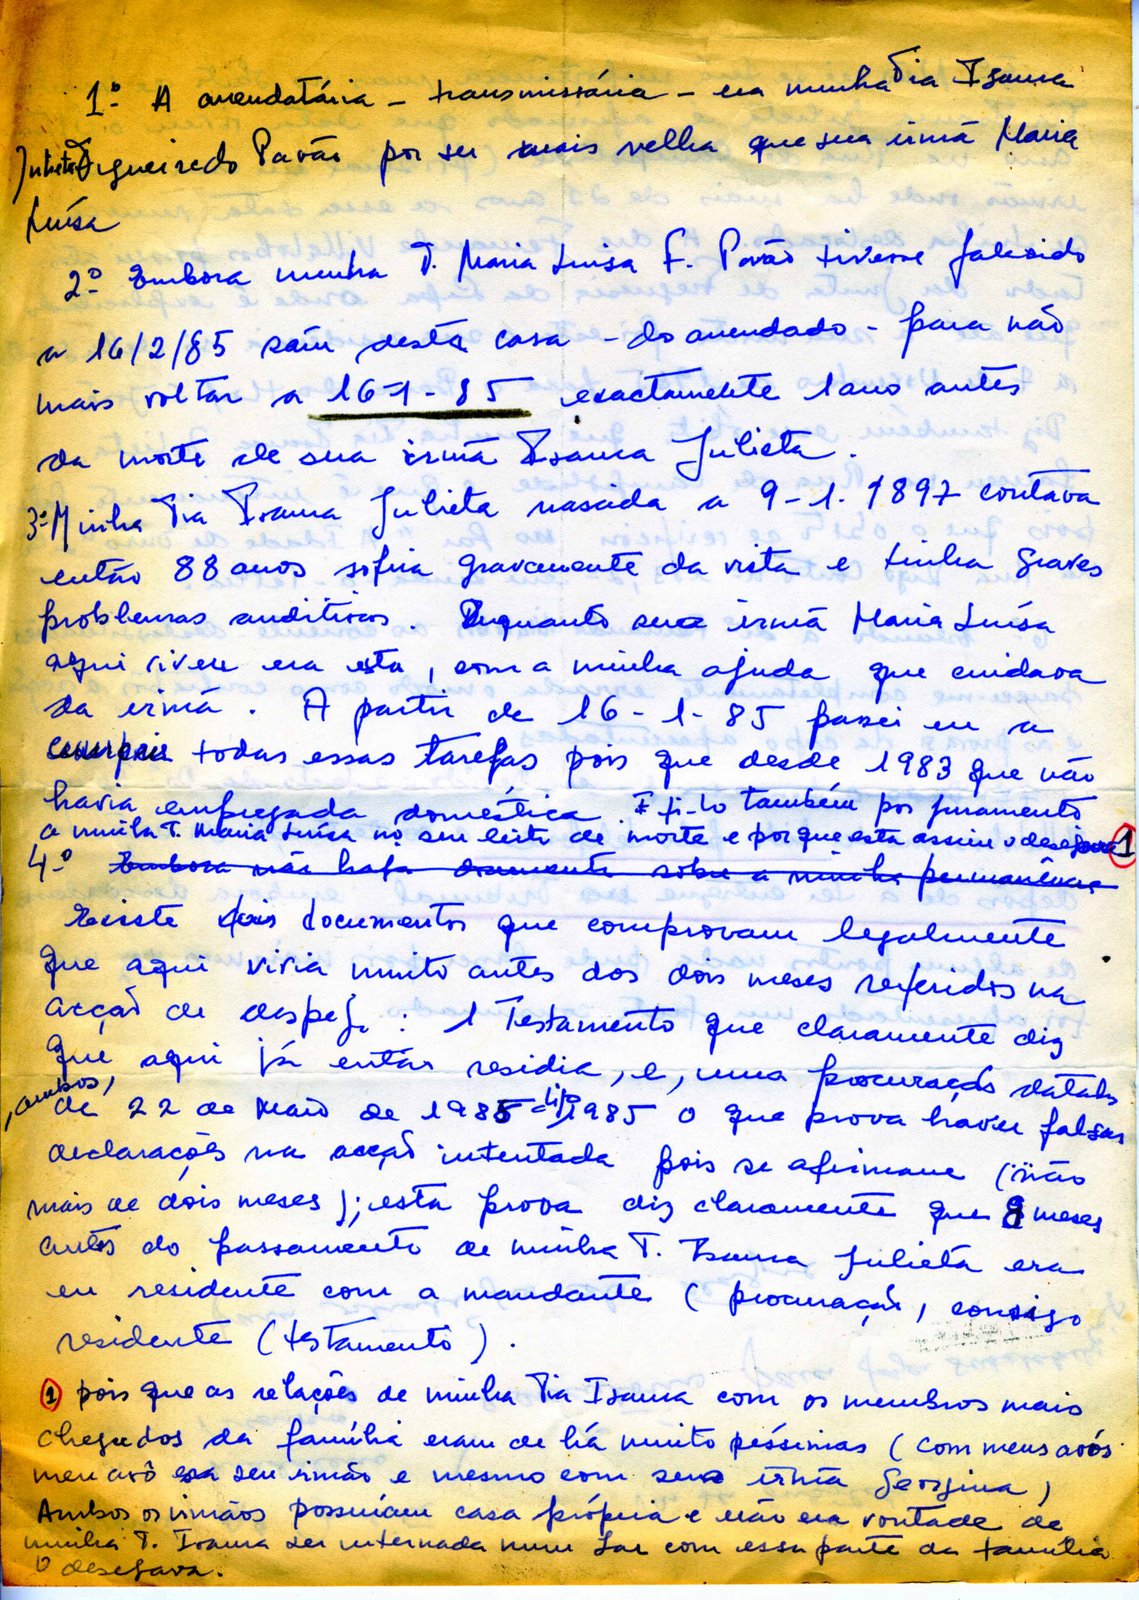 1º A arrendatária - transmissária - era minha Tia Isaura
Julieta Figueiredo Pavão por ser mais velha que sua irmã Maria
Luísa
2º Embora minha T. Maria Luísa F. Pavão tivesse falecido
a 16/2/85 saíu desta casa - do arrendado - para não
mais voltar a 16-1-85 exactamente 1 ano antes
da morte de sua irmã Isaura Julieta.
3º Minha Tia Isaura Julieta nascida a 9-1-1897 contava
então 88 anos sofria gravemente da vista e tinha graves
problemas auditivos. Enquanto sua irmã Maria Luísa
aqui viveu era esta, com a minha ajuda que cuidava
da irmã. A partir de 16-1-85 passei eu a
cumprir todas essas tarefas pois que desde 1983 que não
havia empregada doméstica. E fi-lo também por juramento
a minha T. Maria Luísa no seu leito de morte e porque esta assim o desejava 1
4º Embora não haja documento sobre a minha permanência
Existe dois documentos que comprovam legalmente
que aqui vivia muito antes dos dois meses referidos na
acção de despejo: 1 Testamento que claramente diz
que aqui já então residia, e, uma procuração datados
, ambos, de 22 de Maio de 1985 - digo 1985 o que prova haver falsas
declarações na acção intentada pois se afirmava (não
mais de dois meses); esta prova diz claramente que 8 meses
antes do passamento de minha T. Isaura Julieta era
eu residente com a mandante (procuração, consigo
residente (testamento).
1 pois que as relações de minha Tia Isaura com os membros mais
chegados da família eram de há muito péssimas (com meus avós
meu avô era seu irmão e mesmo com sua irmã Georgina)
Ambos os irmãos possuíam casa própria e não era vontade de
minha T. Isaura ser internada num Lar com essa parte da família
o desejava.